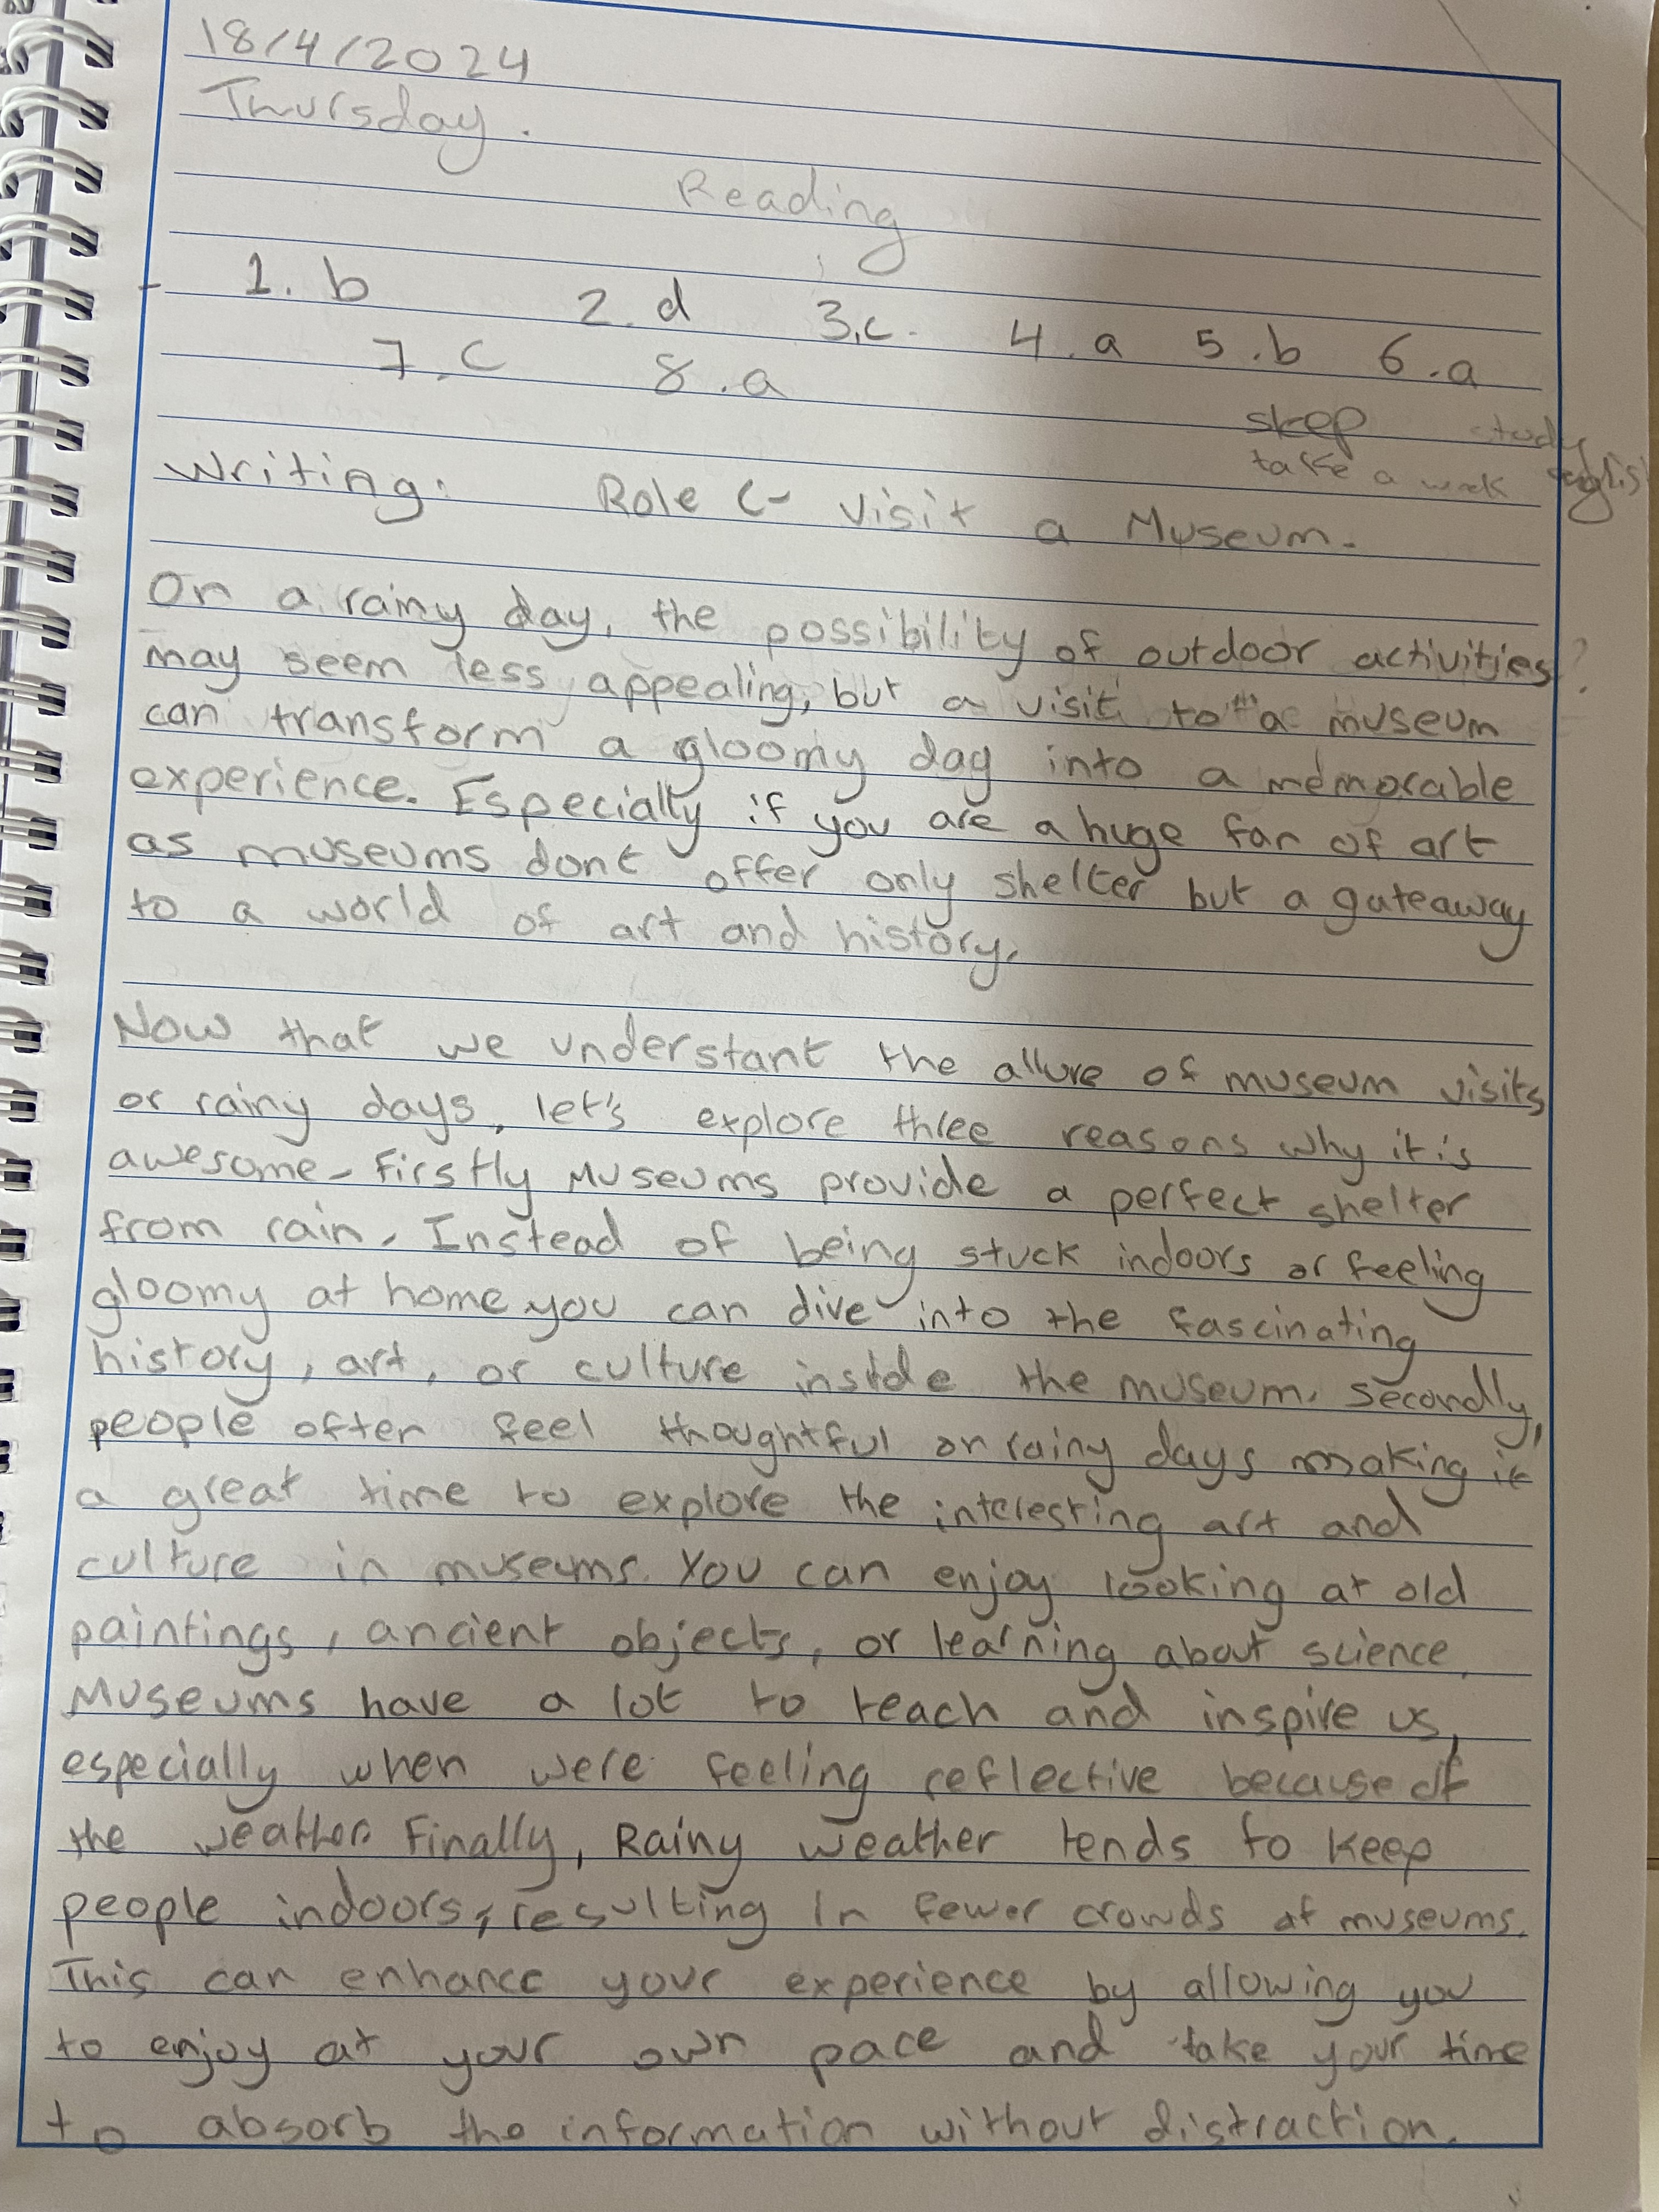 18/4/2024
Thursday.
Reading
1. b 2. d 3.c. 4.a 5.b 6.a
7.c 8.a
skep study
take a english
Writing: Role C- Visit a Museum.
On a rainy day, the possibility of outdoor activities ?
may seem less appealing, but a visit to "a museum
can transform a gloomy day into a memorable
experience. Especially if you are a huge fan of art
as museums dont offer only shelter but a gateaway
to a world of art and history.
Now that we understant the allure of museum visits
or rainy days, let's explore three reasons why it is
awesome. Firstly Museums provide a perfect shelter
from rain. Instead of being stuck indoors or feeling
gloomy at home you can dive into the fascinating
history, art, or culture inside the museum. Secondly,
people often feel thoughtful on rainy days making it
a great time to explore the interesting art and
culture in museums. You can enjoy looking at old
paintings, ancient objects, or learning about science.
Museums have a lot to teach and inspire us,
especially when were feeling reflective because of
the weather. Finally, Rainy weather tends to keep
people indoors, resulting in fewer crowds at museums.
This can enhance your experience by allowing you
to enjoy at your own pace and take your time
to absorb the information without distraction.